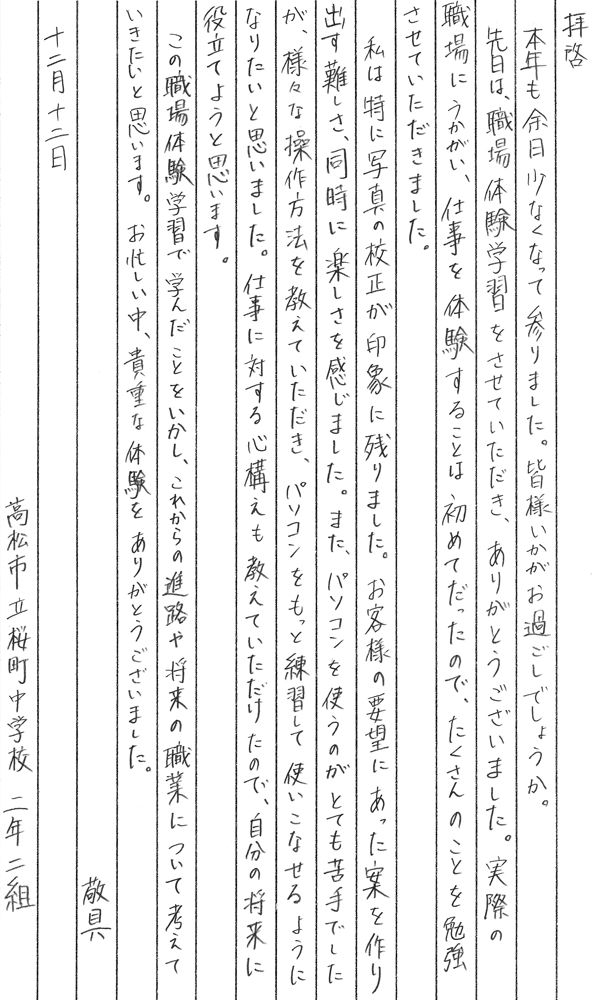 拝啓
本年も余日少なくなって参りました。皆様いかがお過ごしでしょうか。
先日は、職場体験学習をさせていただき、ありがとうございました。実際の
職場にうかがい、仕事を体験することは初めてだったので、たくさんのことを勉強
させていただきました。
私は特に写真の校正が印象に残りました。お客様の要望にあった案を作り
出す難しさ、同時に楽しさを感じました。また、パソコンを使うのがとても苦手でした
が、様々な操作方法を教えていただき、パソコンをもっと練習して使いこなせるように
なりたいと思いました。仕事に対する心構えも教えていただけたので、自分の将来に
役立てようと思います。
この職場体験学習で学んだことをいかし、これからの進路や将来の職業について考えて
いきたいと思います。お忙しい中、貴重な体験をありがとうございました。
敬具
十二月十二日
高松市立桜町中学校 二年二組